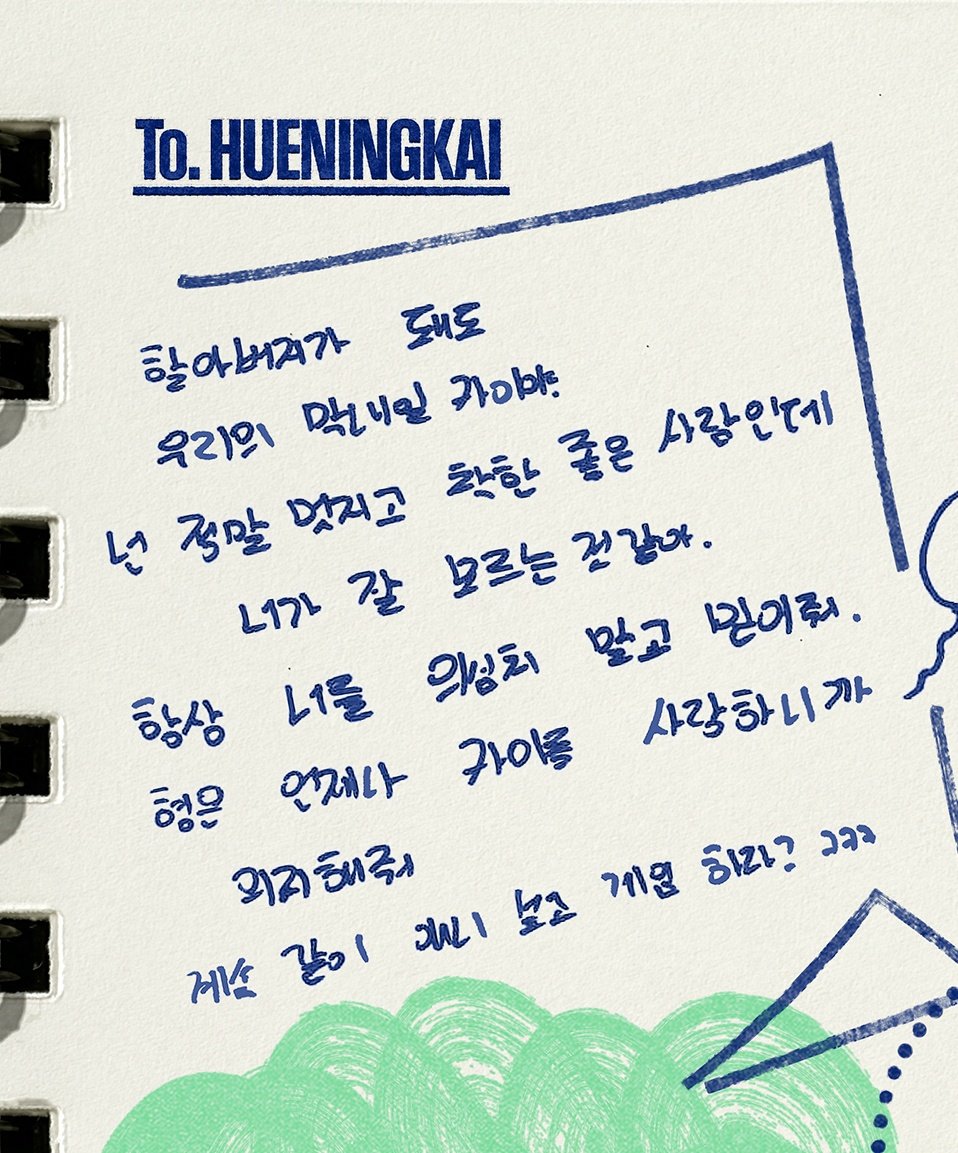 To. HUENINGKAI
할아버지가 돼도
우리의 막내일 카이야.
넌 정말 멋지고 착한 좋은 사람인데
너가 잘 모르는 것 같아.
항상 너를 의심치 말고 믿어줘.
형은 언제나 카이를 사랑하니까
의지해줘
계속 같이 애니 보고 게임 하자? ㅋㅋㅋ